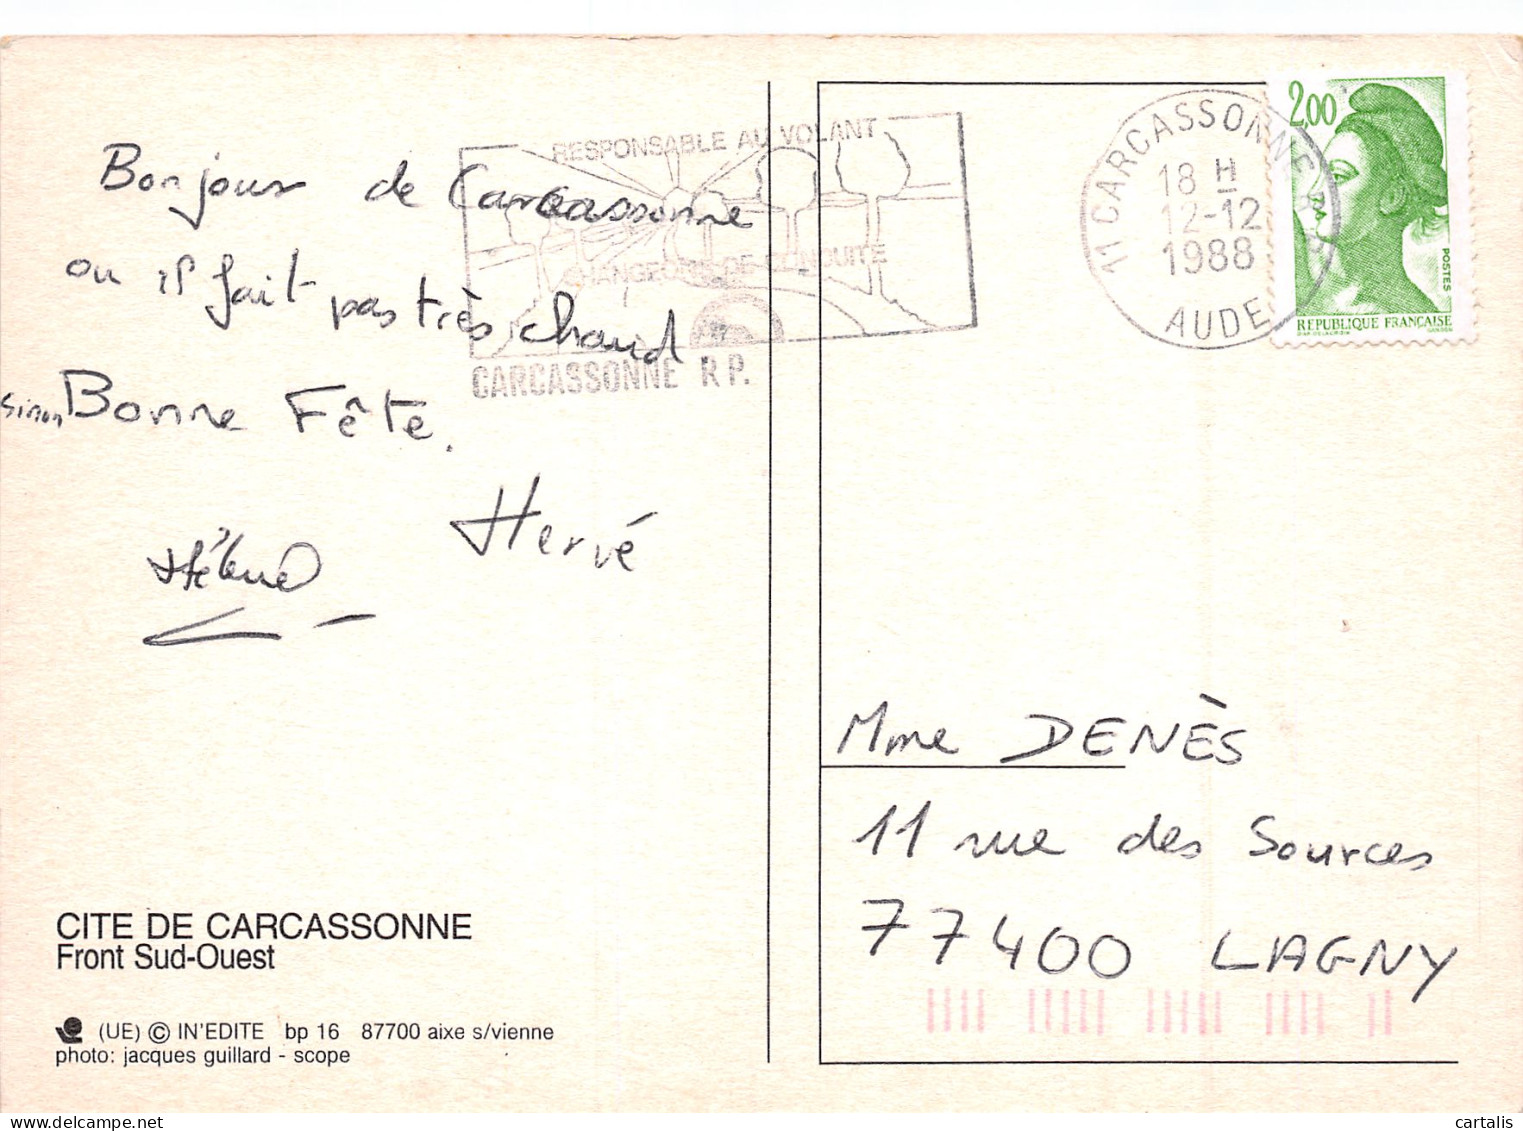 Bonjour de Carcassonne
ou il fait pas très chaud
sinon, Bonne Fête.
Hervé
Hélène
CITE DE CARCASSONNE
Front Sud-Ouest
(UE) © IN'EDITE bp 16 87700 aixe s/vienne
photo: jacques guillard - scope
RESPONSABLE AU VOLANT
CHANGEONS DE CONDUITE
CARCASSONNE R P.
11 CARCASSONNE R.P.
18 H
12-12
1988
AUDE
2,00
POSTES
REPUBLIQUE FRANÇAISE
Mme DENÈS
11 rue des Sources
77400 LAGNY
cartalis